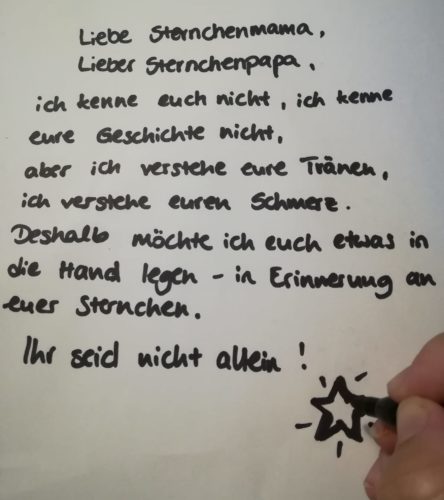 Liebe Sternchenmama,
Lieber Sternchenpapa,
ich kenne euch nicht, ich kenne
eure Geschichte nicht,
aber ich verstehe eure Tränen,
ich verstehe euren Schmerz.
Deshalb möchte ich euch etwas in
die Hand legen - in Erinnerung an
euer Sternchen.
Ihr seid nicht allein!